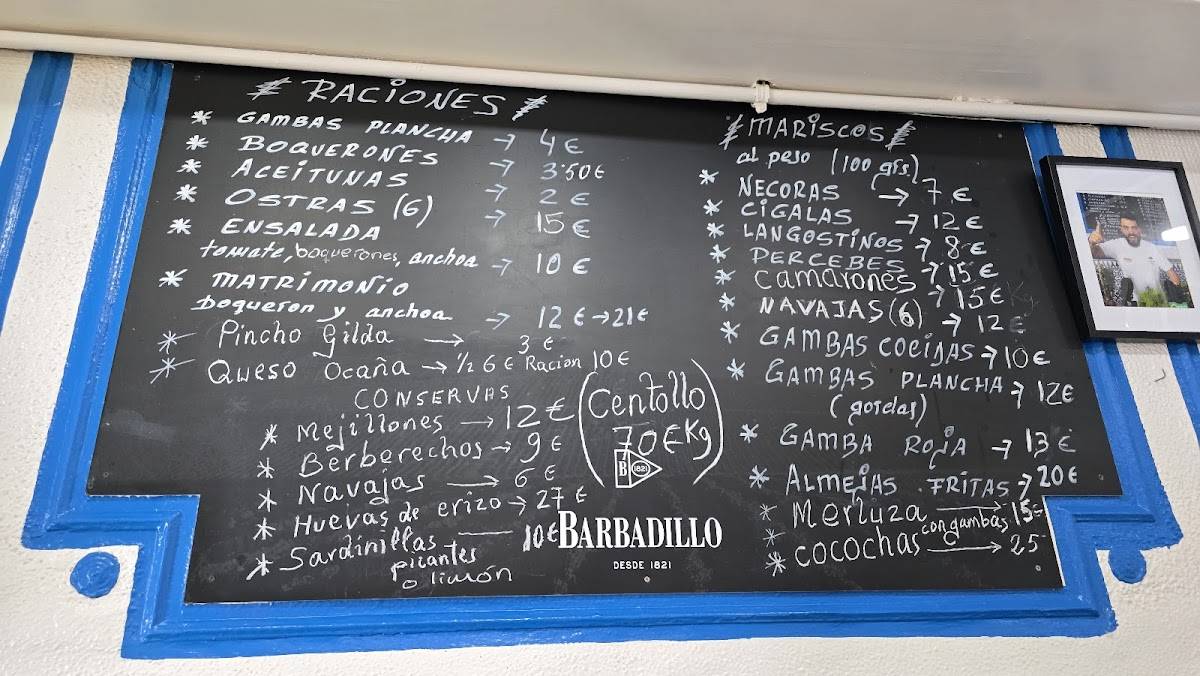 RACIONES
* GAMBAS PLANCHA → 4 €
* BOQUERONES → 3'50€
* ACEITUNAS → 2 €
* OSTRAS (6) → 15 €
* ENSALADA
tomate, boquerones, anchoa → 10 €
* MATRIMONIO
boqueron y anchoa → 12 € → 21€
* Pincho Gilda → 3 €
* Queso Ocaña → 1/2 6 € Racion 10 €
CONSERVAS
* Mejillones → 12 €
* Berberechos → 9 €
* Navajas → 6 €
* Huevas de erizo → 27 €
* Sardinillas — 10€
picantes
o limón
(Centollo
70€ Kg)
B 1821
BARBADILLO
DESDE 1821
MARISCOS
al peso (100 grs.)
* NECORAS → 7 €
* CIGALAS → 12 €
* LANGOSTINOS → 8 €
* PERCEBES → 15 €
* Camarones → 15 €
* NAVAJAS (6) → 12 €
* GAMBAS COCIDAS → 10 €
* GAMBAS PLANCHA → 12€
(gordas)
* GAMBA ROJA → 13 €
* ALMEJAS FRITAS → 20€
* Merluza → 15€
* con gambas
* COCOCHAS → 25